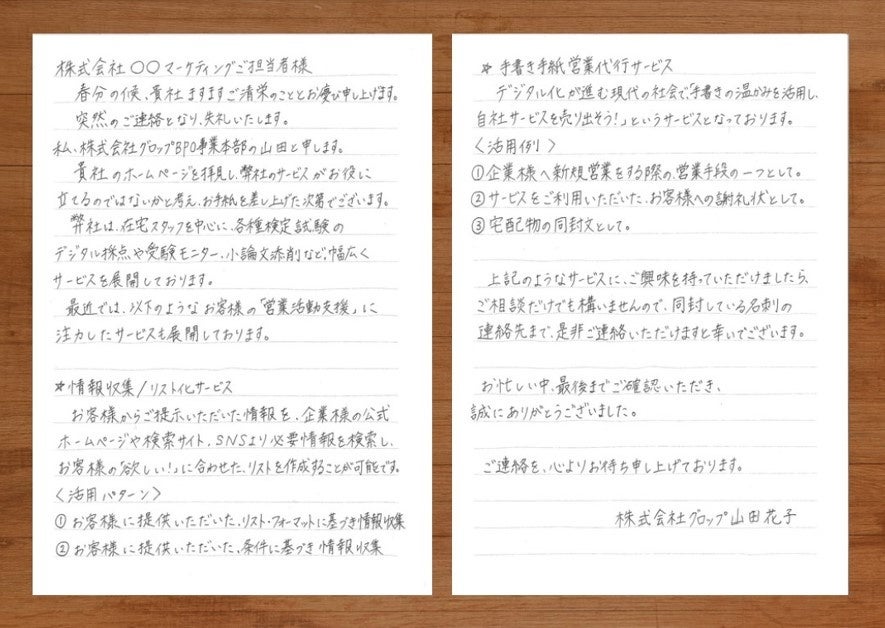 株式会社〇〇マーケティングご担当者様
春分の候、貴社ますますご清栄のこととお慶び申し上げます。
突然のご連絡となり、失礼いたします。
私、株式会社グロップBPO事業本部の山田と申します。
貴社のホームページを拝見し、弊社のサービスがお役に
立てるのではないかと考え、お手紙を差し上げた次第でございます。
弊社は、在宅スタッフを中心に、各種検定試験の
デジタル採点や受験モニター、小論文添削など、幅広く
サービスを展開しております。
最近では、以下のようなお客様の「営業活動支援」に
注力したサービスも展開しております。
☆情報収集/リスト化サービス
お客様からご提示いただいた情報を、企業様の公式
ホームページや検索サイト、SNSより必要情報を検索し、
お客様の「欲しい!」に合わせた、リストを作成することが可能です。
〈活用パターン〉
①お客様に提供いただいた、リスト・フォーマットに基づき情報収集
②お客様に提供いただいた、条件に基づき情報収集
☆手書き手紙営業代行サービス
デジタル化が進む現代の社会で、「手書きの温かみを活用し、
自社サービスを売り出そう!」というサービスとなっております。
〈活用例〉
①企業様へ新規営業をする際の、営業手段の一つとして。
②サービスをご利用いただいた、お客様への謝礼状として。
③宅配物の同封文として。
上記のようなサービスに、ご興味を持っていただけましたら、
ご相談だけでも構いませんので、同封している名刺の
連絡先まで、是非ご連絡いただけますと幸いでございます。
お忙しい中、最後までご確認いただき、
誠にありがとうございました。
ご連絡を、心よりお待ち申し上げております。
株式会社グロップ 山田花子